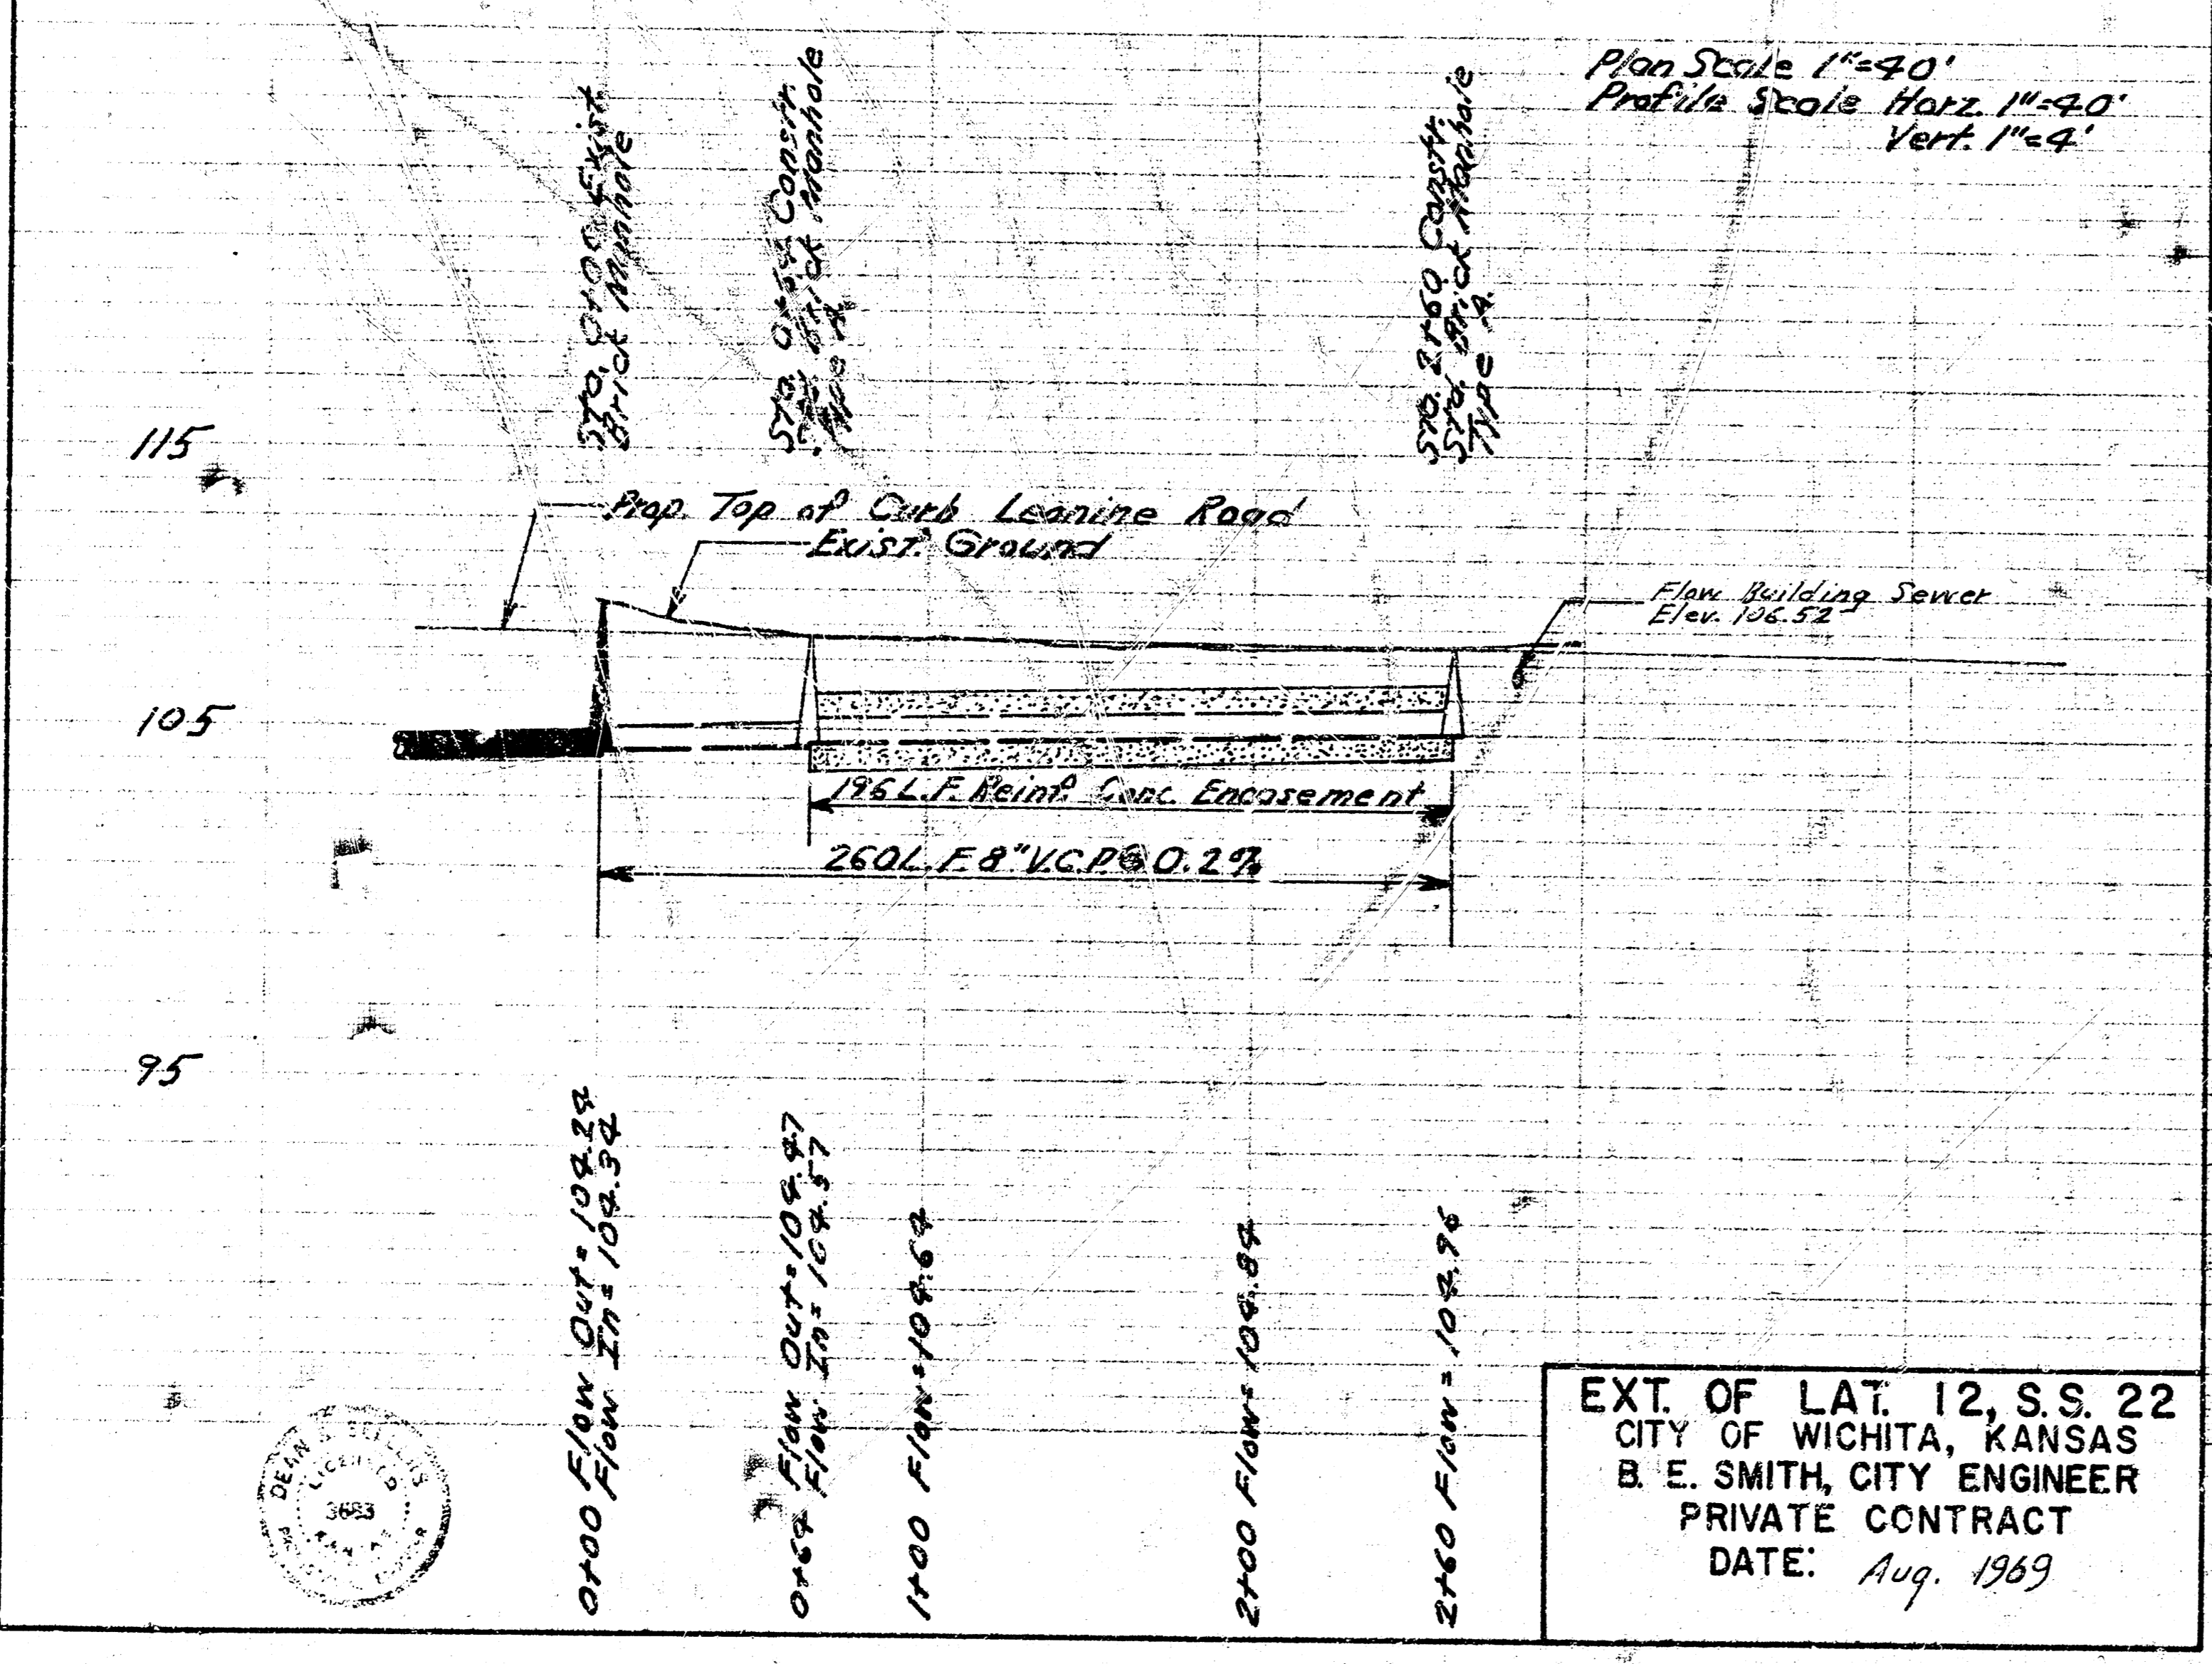 Plan Scale 1"=40'
Profile Scale Horz. 1"=40'
Vert. 1"=4'
Sta. 0+00 Exist.
Brick Manhole
Sta. 0+64 Constr.
Std. Brick Manhole
Type A
Sta. 2+60 Constr.
Std. Brick Manhole
Type A
115
Prop. Top of Curb Leonine Road
Exist. Ground
Flow Building Sewer
Elev. 106.52
105
196 L.F. Reinf. Conc. Encasement
260 L.F. 8" V.C.P. @ 0.2%
95
0+00 Flow Out = 104.24
Flow In = 104.34
0+64 Flow Out = 104.47
Flow In = 104.57
1+00 Flow = 104.64
2+00 Flow = 104.84
2+60 Flow = 104.96
DEAN
LICENSED
3683
EXT. OF LAT. 12, S.S. 22
CITY OF WICHITA, KANSAS
B. E. SMITH, CITY ENGINEER
PRIVATE CONTRACT
DATE: Aug. 1969